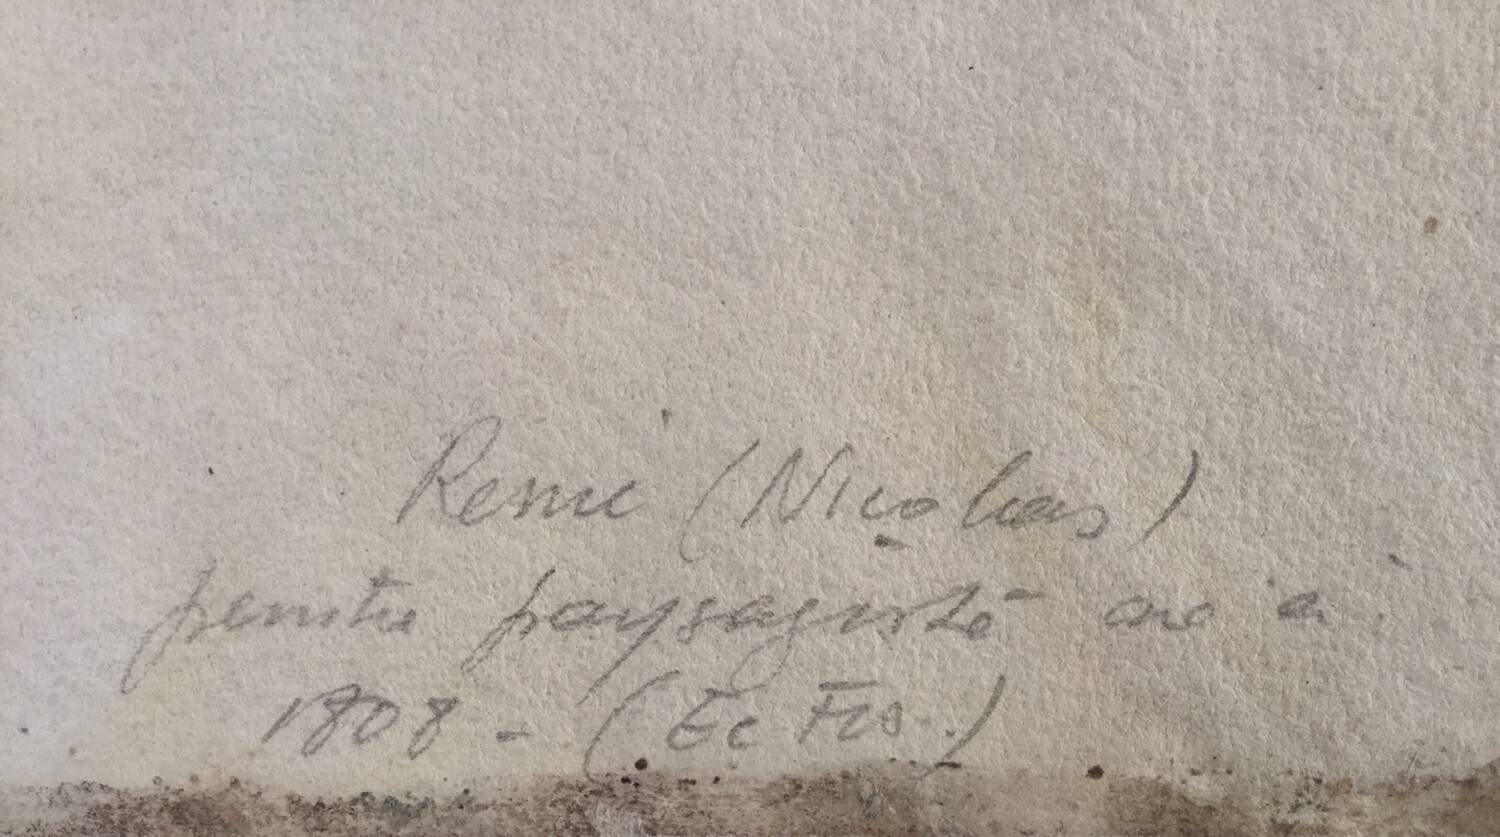 Remi (Nicolas)
peintre paysagiste né à
1808 - (Ec Fse.)